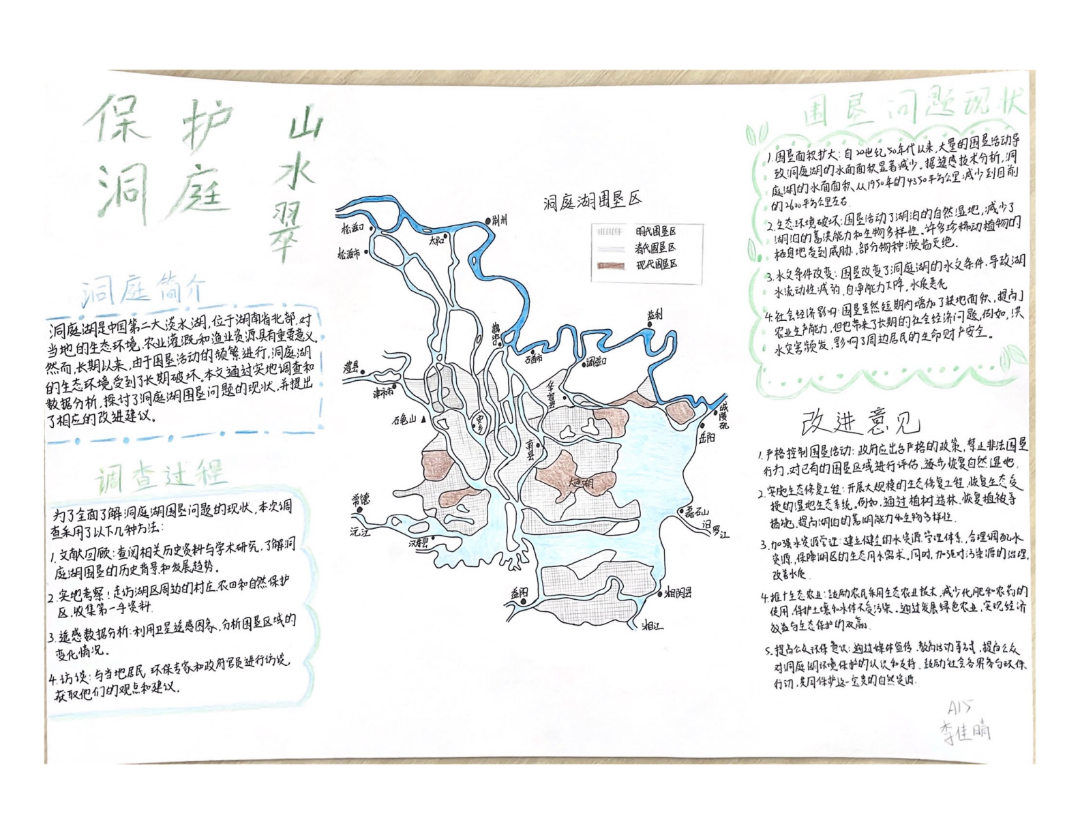 保护
洞庭
山水翠
洞庭简介
洞庭湖是中国第二大淡水湖,位于湖南省北部,对
当地的生态环境,农业灌溉和渔业资源具有重要意义
然而,长期以来,由于围垦活动的频繁进行,洞庭湖
的生态环境受到了长期破坏,本文通过实地调查和
数据分析,探讨了洞庭湖围垦问题的现状,并提出
了相应的改进建议。
调查过程
为了全面了解洞庭湖围垦问题的现状,本次调
查采用了以下几种方法:
1.文献回顾:查阅相关历史资料与学术研究,了解洞
庭湖围垦的历史背景和发展趋势。
2.实地考察:走访湖区周边的村庄、农田和自然保护
区,收集第一手资料
3.遥感数据分析:利用卫星遥感图象,分析围垦区域的
变化情况。
4.访谈:与当地居民、环保专家和政府官员进行访谈,
获取他们的观点和建议。
洞庭湖围垦区
明代围垦区
清代围垦区
现代围垦区
荆州
松滋口
太和
松滋市
监利
石首市
调弦口
澧县
津市市
石龟山
安乡
南县
华容县
城陵矶
岳阳
大通湖
常德
沅江
汉寿县
磊石山
汨罗江
益阳
湘阴县
湘江
围垦问题现状
1.围垦面积扩大:自20世纪50年代以来,大量的围垦活动导
致洞庭湖的水面面积显著减少。据遥感技术分析,洞
庭湖的水面面积从1950年的4350平方公里减少到目前
的2600平方公里左右
2.生态环境破坏:围垦活动了湖泊的自然湿地,减少了
湖泊的蓄洪能力和生物多样性。许多珍稀动植物的
栖息地受到威胁,部分物种濒临灭绝。
3.水文条件改变:围垦改变了洞庭湖的水文条件,导致湖
水流动性减弱,自净能力下降,水质恶化
4.社会经济影响:围垦虽然短期内增加了耕地面积,提高了
农业生产能力,但也带来了长期的社会经济问题,例如,洪
水灾害频发,影响了周边居民的生命财产安全。
改进意见
1.严格控制围垦活动:政府应出台严格的政策,禁止非法围垦
行为,对已有的围垦区域进行评估,逐步恢复自然湿地.
2.实施生态修复工程:开展大规模的生态修复工程,恢复生态受
损的湿地生态系统,例如,通过植树造林、恢复植被等
措施,提高湖泊的蓄洪能力和生物多样性.
3.加强水资源管理:建立健全的水资源管理体系,合理调配水
资源,保障湖区的生态用水需求,同时,加强对污染源的治理,
改善水质
4.推广生态农业:鼓励农民采用生态农业技术,减少化肥和农药的
使用,保护土壤和水体不受污染,通过发展绿色农业,实现经济
效益与生态保护的双赢
5.提高公众环保意识:通过媒体宣传、教育活动等方式,提高公众
对洞庭湖环境保护的认识和支持,鼓励社会各界参与环保
行动,共同保护这一宝贵的自然资源.
A15
李佳晴